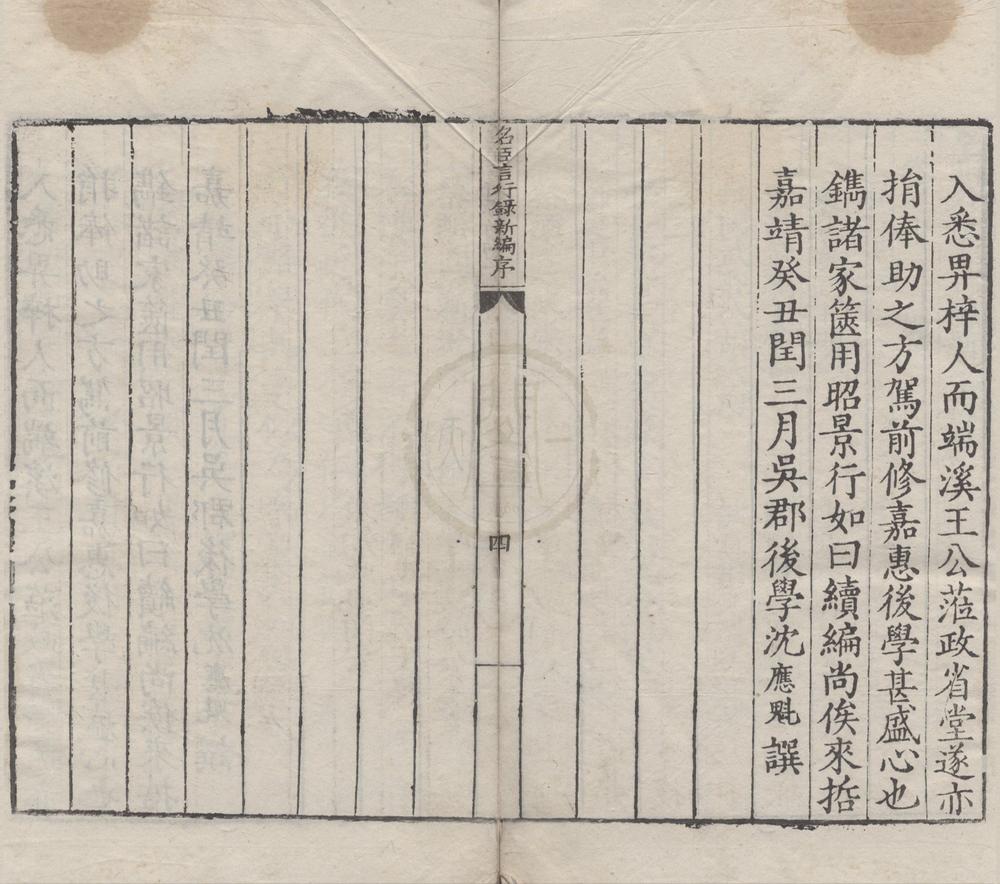 入悉畀梓人而端溪王公蒞政省堂遂亦
捐俸助之方駕前修嘉惠後學甚盛心也
鐫諸家篋用昭景行如曰續編尚俟來哲
嘉靖癸丑閏三月吳郡後學沈應魁譔
名臣言行錄新編序
四